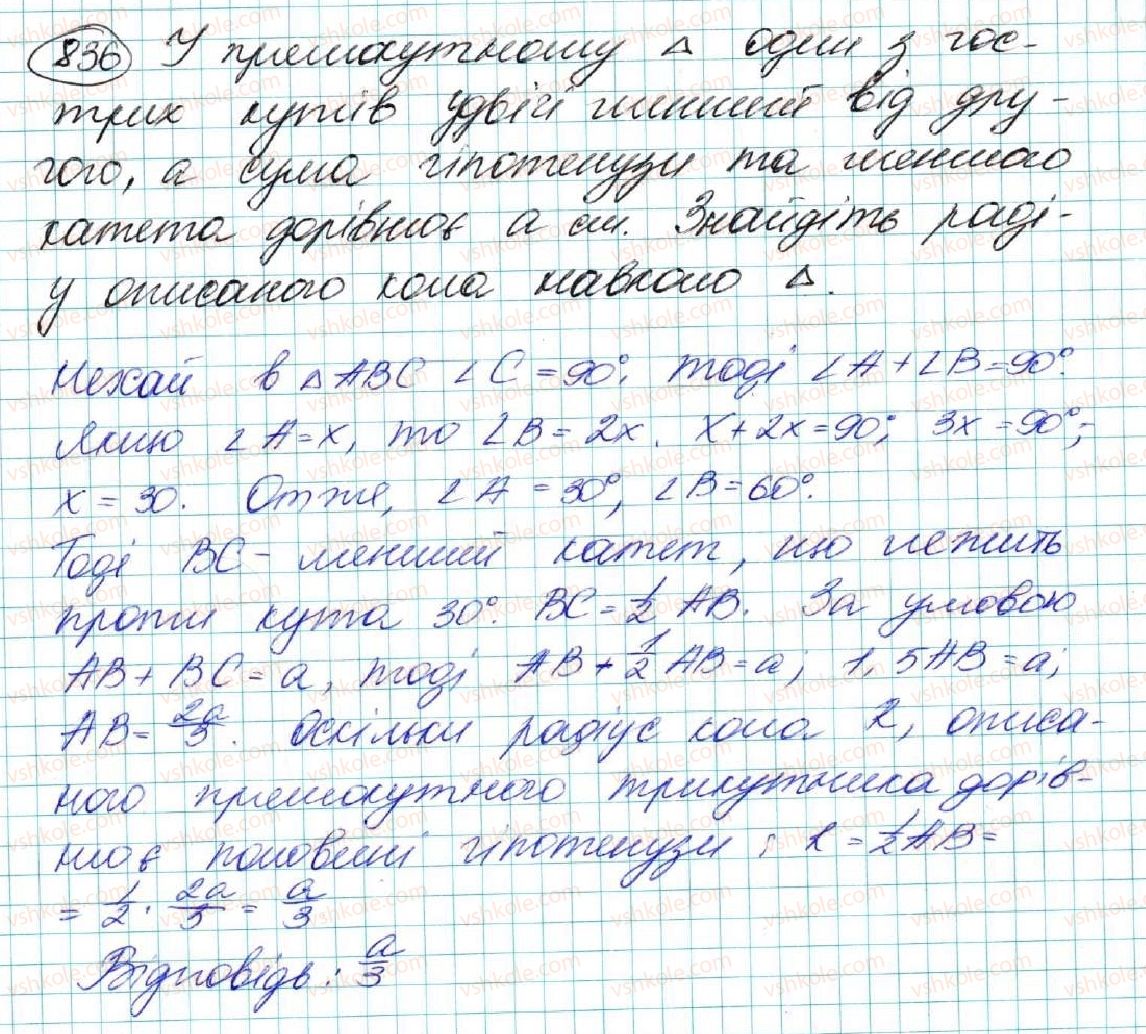 836 У прямокутному △ один з гос-
трих кутів удвічі менший від дру-
гого, а сума гіпотенузи та меншого
катета дорівнює a см. Знайдіть раді-
у описаного кола навколо △.
Нехай в △ABC ∠C = 90°. Тоді ∠A + ∠B = 90°.
Якщо ∠A = x, то ∠B = 2x. x + 2x = 90°; 3x = 90°;
x = 30. Отже, ∠A = 30°, ∠B = 60°.
Тоді BC - менший катет, що лежить
проти кута 30°. BC = 1/2 AB. За умовою
AB + BC = a, тоді AB + 1/2 AB = a; 1,5AB = a;
AB = 2a/3. Оскільки радіус кола R, описа-
ного прямокутного трикутника дорів-
нює половині гіпотенузи, R = 1/2 AB =
= 1/2 · 2a/3 = a/3
Відповідь: a/3
vshkole.com